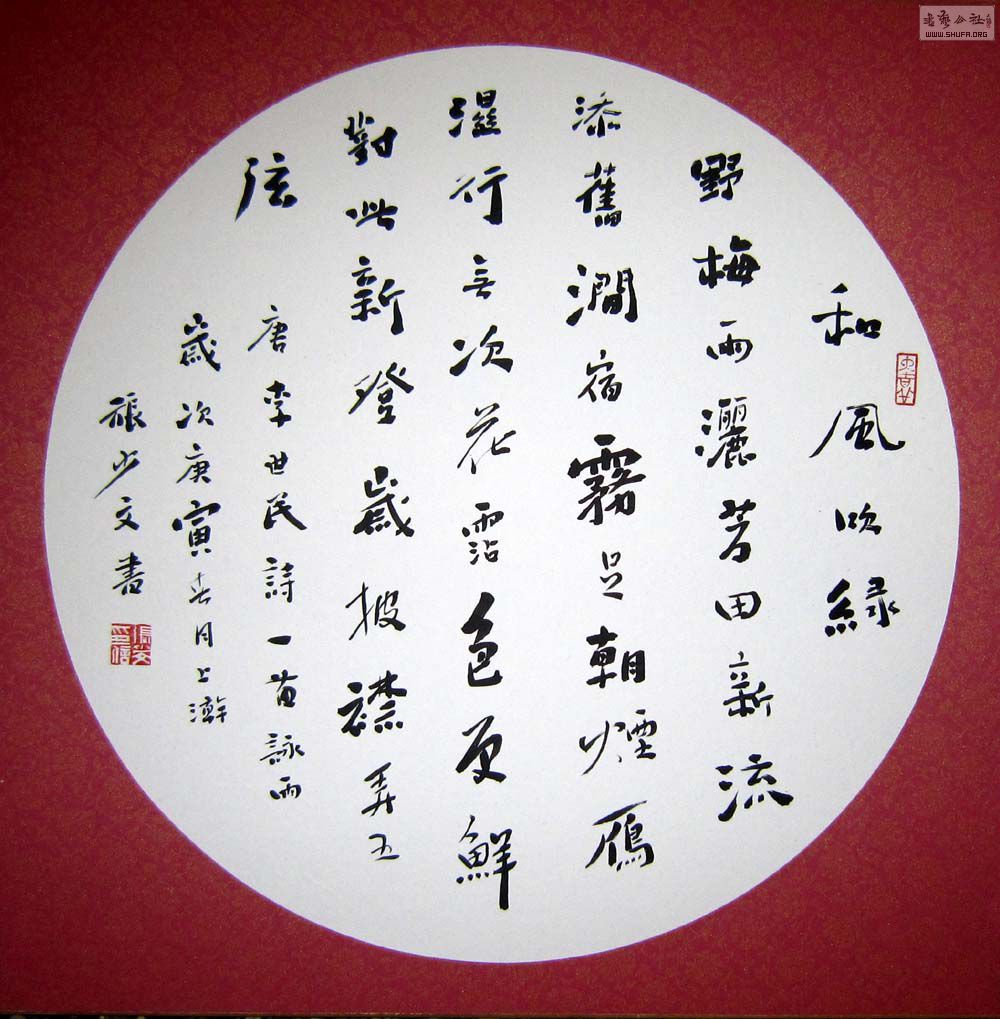 和風吹綠
野梅雨灑芳田新流
添舊澗宿霧足朝煙雁
濕行無次花霑色更鮮
對此新登歲披襟弄五
弦 唐李世民詩一首詠雨
歲次庚寅春月上澣
張少文書
書藝公社
WWW.SHUFA.ORG